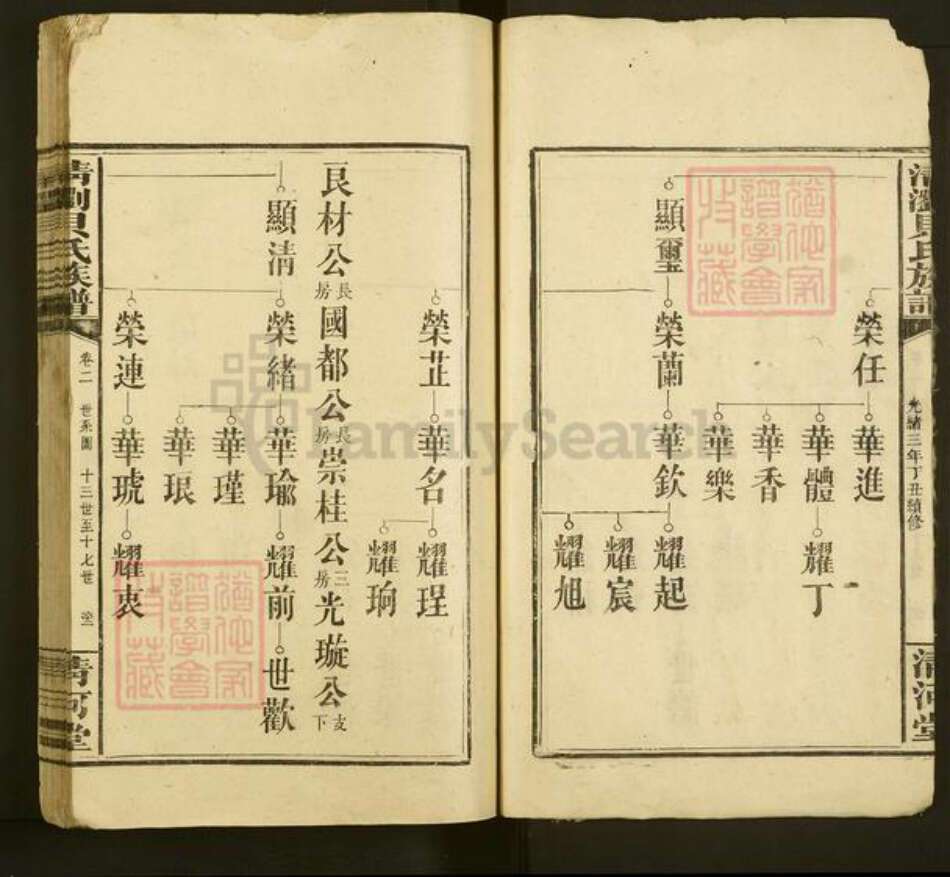 光緒三年丁丑續修
清河堂
榮任
華進
華體
華香
華樂
耀丁
顯璽
榮蘭
華欽
耀起
耀宸
耀旭
榮芷
華名
耀珵
耀珦
良材公長房國都公長房崇桂公三房光璇公支下
顯清
榮緒
華瑜
華瑾
華琅
耀前
世歡
榮連
華琥
耀衷
貝氏族譜
卷二 世系圖 十三世至十七世
清河堂
猶他家譜學會收藏
猶他家譜學會收藏
FamilySearch